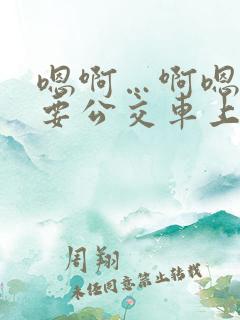 嗯啊…啊嗯
要公交车上
周翔
未经同意禁止转载